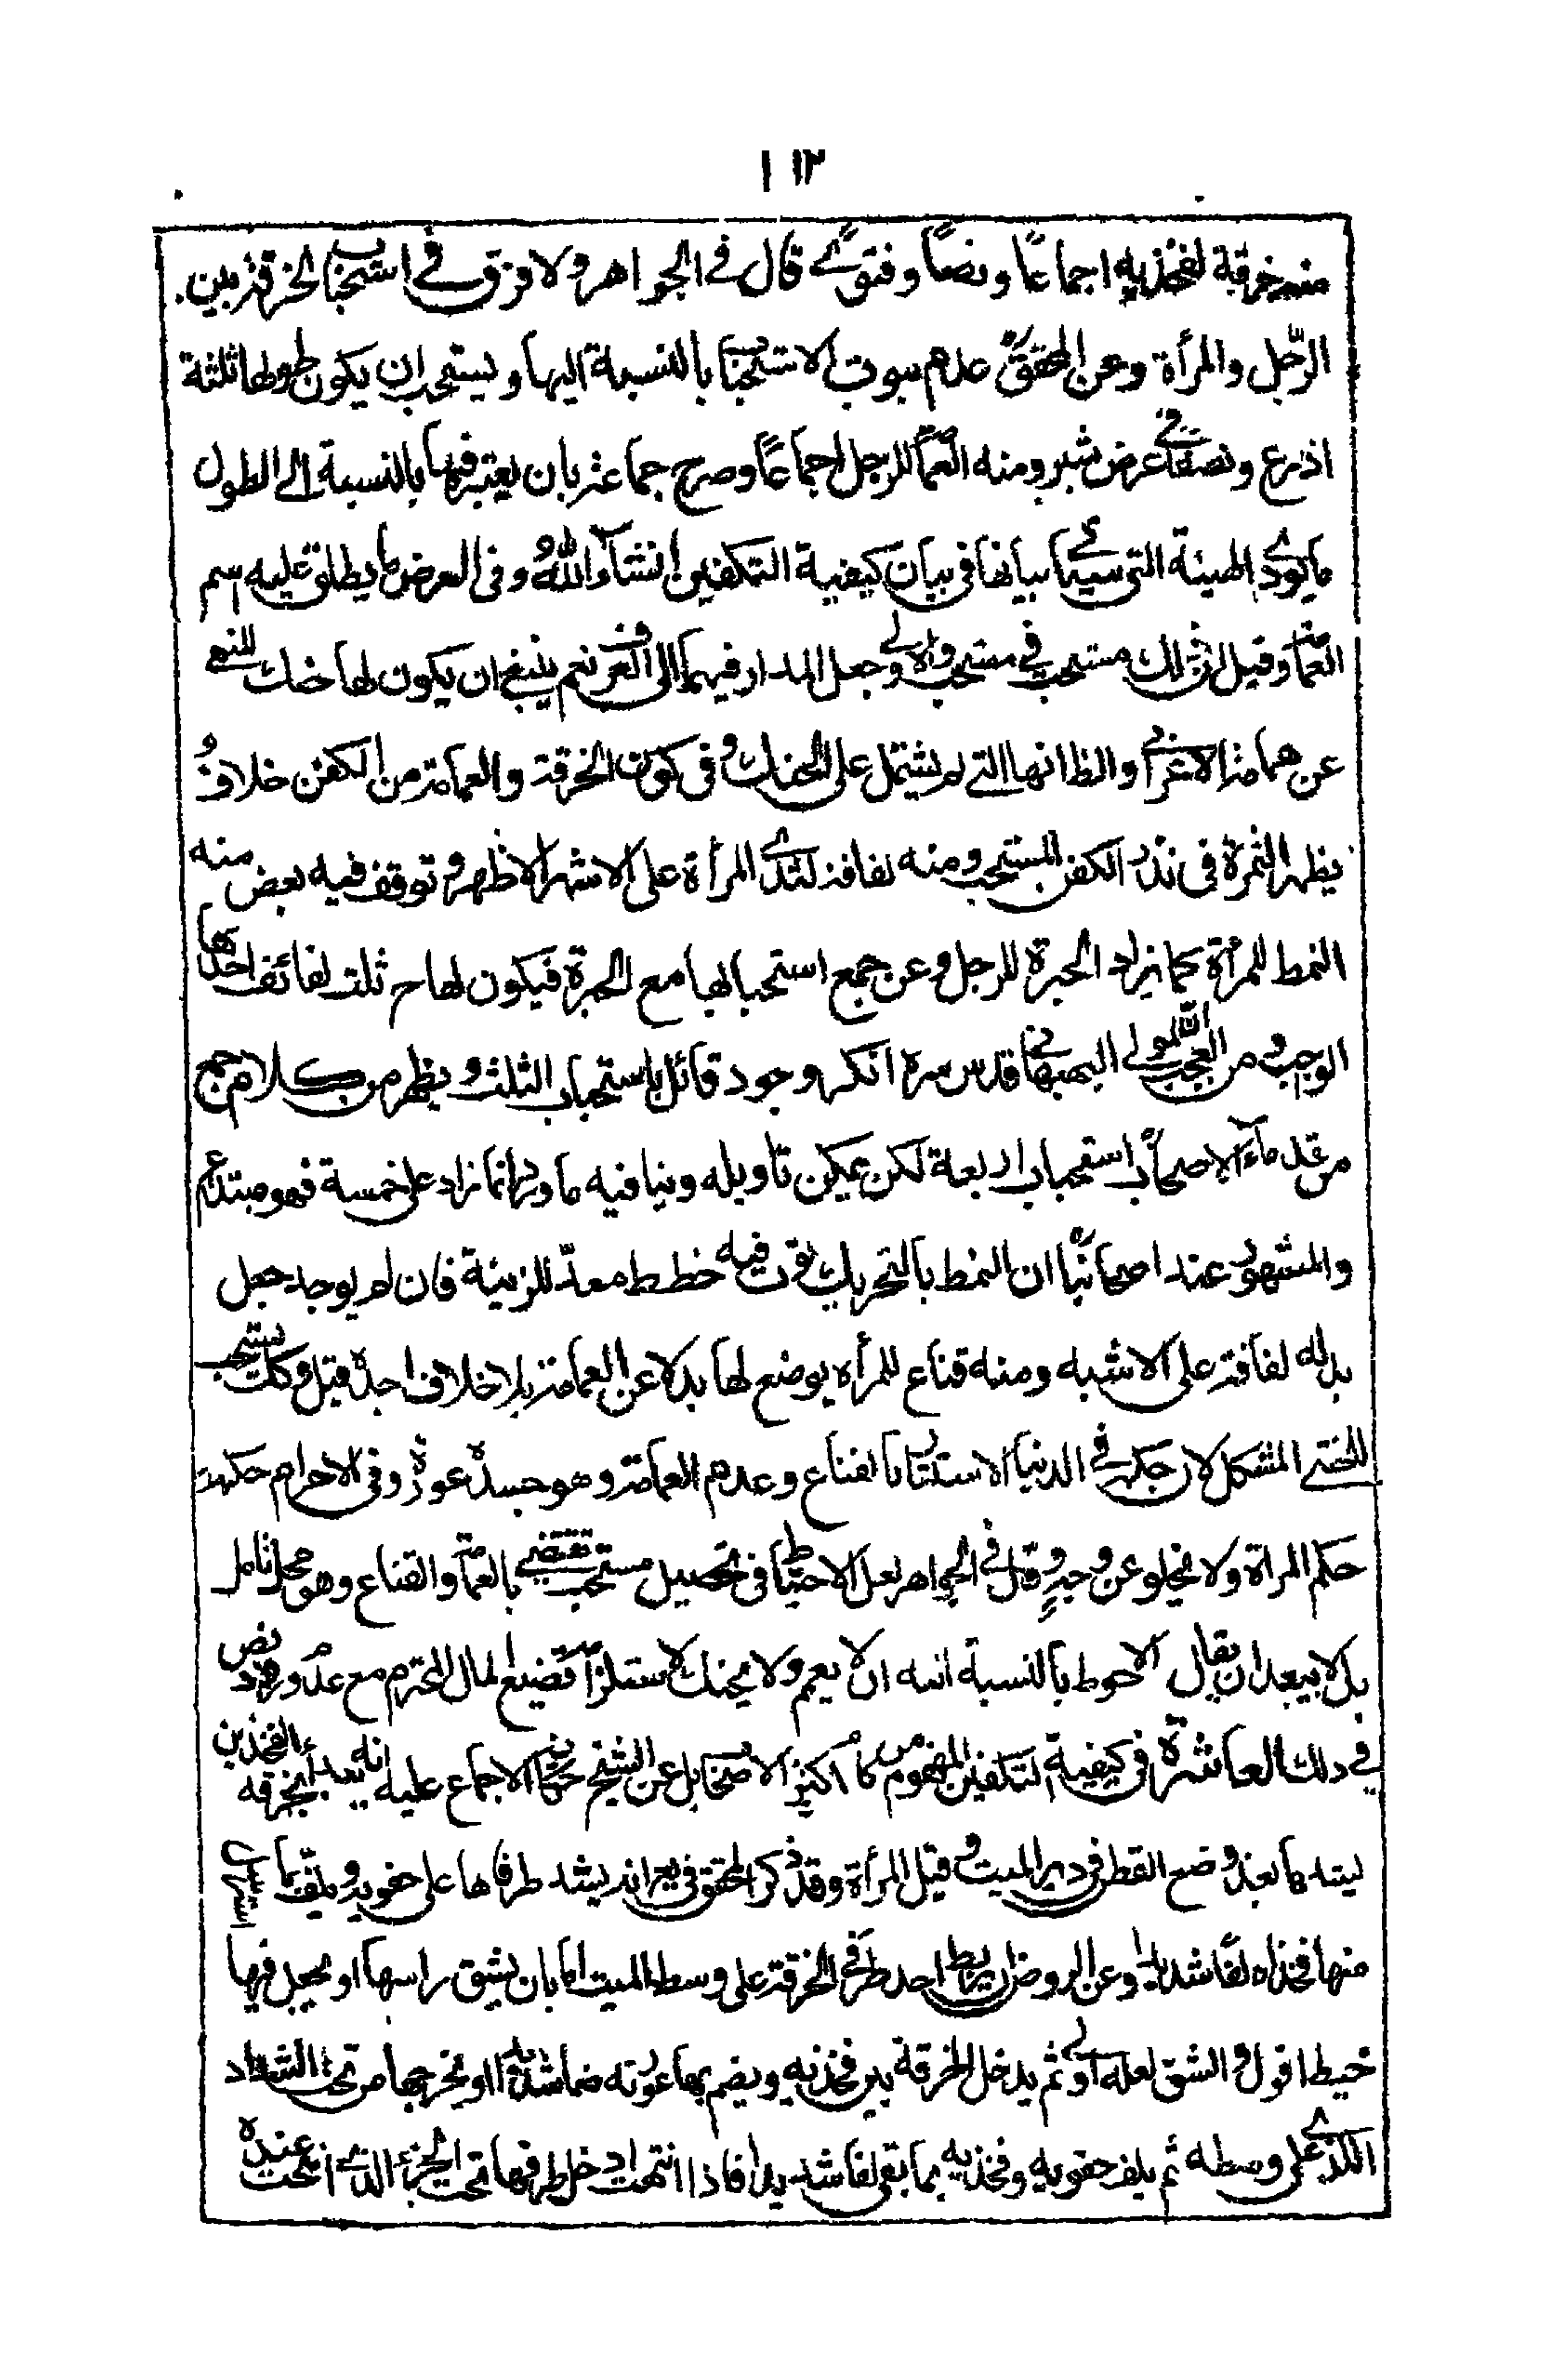 ١١٢
منه خرقة لفخذيه اجماعًا ونصًا وفتوى قال في الجواهر ولا فرق في استحباب الخرقة بين
الرّجل والمرأة وعن المحقق عدم ثبوت الاستحباب بالنسبة اليها ويستحب ان يكون طولها ثلثة
اذرع ونصفا في عرض شبر ومنه العمامة للرجل اجماعًا وصرح جماعة بان يعتبر فيها بالنسبة الى الطول
ما يؤدى الهيئة التي سيأتي بيانها في بيان كيفية التكفين انشاء اللهُ وفي العرض ما يطلق عليه اسم
العمامة وقيل ان ذلك مستحب في مستحب والاولى وجعل المدار فيهما الى العرف نعم ينبغي ان يكون لها حنك للنهي
عن عمامة الاعرابي والظ انها التي لم يشتمل على الحنك وفي كون الخرقة والعمامة من الكفن خلافُ
يظهر الثمرة في نذر الكفن المستحب ومنه لفافة لثدى المرأة على الاشهر الاظهر وتوقف فيه بعض منه
النمط للمرأة كما يزاد الحبرة للرجل وعن جمع استحبابها مع الحبرة فيكون لها ح ثلث لفائف احدها
الوجب ومن العجب ان المولى البهبهاني قدس سره انكر وجود قائل باستحباب الثلث ويظهر من كلام جمع
من قدماء الاصحاب استحباب اربعة لكن يمكن تاويله وينافيه ما ورد انما زاد على خمسة فهو مبتدع
والمشهور عند اصحابنا ان النمط بالتحريك ثوب فيه خطط معدّ للزينة فان لم يوجد جعل
بدله لفافة على الاشبه ومنه قناع للمرأه يوضع لها بدلا عن العمامة بلا خلاف اجده قيل وكك يستحب
للخنثى المشكل لان حكمه في الدنيا الاستتار بالقناع وعدم العمامة وهو جسده عورة وفي الاحرام حكمه
حكم المراة ولا يخلو عن وجهٍ وقال في الجواهر لعل الاحتياط في تحصيل مستحب يقتضي بالعمامة والقناع وهو محل تامل
بل لا يبعد ان يقال الاحوط بالنسبة انه ان لا يعمم ولا يحنك لاستلزام تضييع المال المحترم مع عدم ورود نص
في ذلك العاشرة في كيفية التكفين المفهوم من كلام اكثر الاصحاب بل عن الشيخ حكاية الاجماع عليه انه يبدأ بخرقه الفخذين
ليشد بها بعد وضع القطن في دبر الميت وقيل المرأة وقد ذكر المحقق في انه يشد طرفاها على حقويه ويلف بما استرسل
منها فخذاه لفًا شديدًا وعن الروض ان يربط احد طرفي الخرقة على وسط الميت اما بان يشق راسها او يجعل فيها
خيطا اقول والشق لعله اولى ثم يدخل الخرقة بين فخذيه ويضم بها عورته ضما شديدا او يخرجها من تحت الشداد
الذى على وسطه ثم يلف حقويه وفخذيه بما بقى لفا شديدا فاذا انتهت ادخل طرفها تحت الجزء الذي انتهت عنده